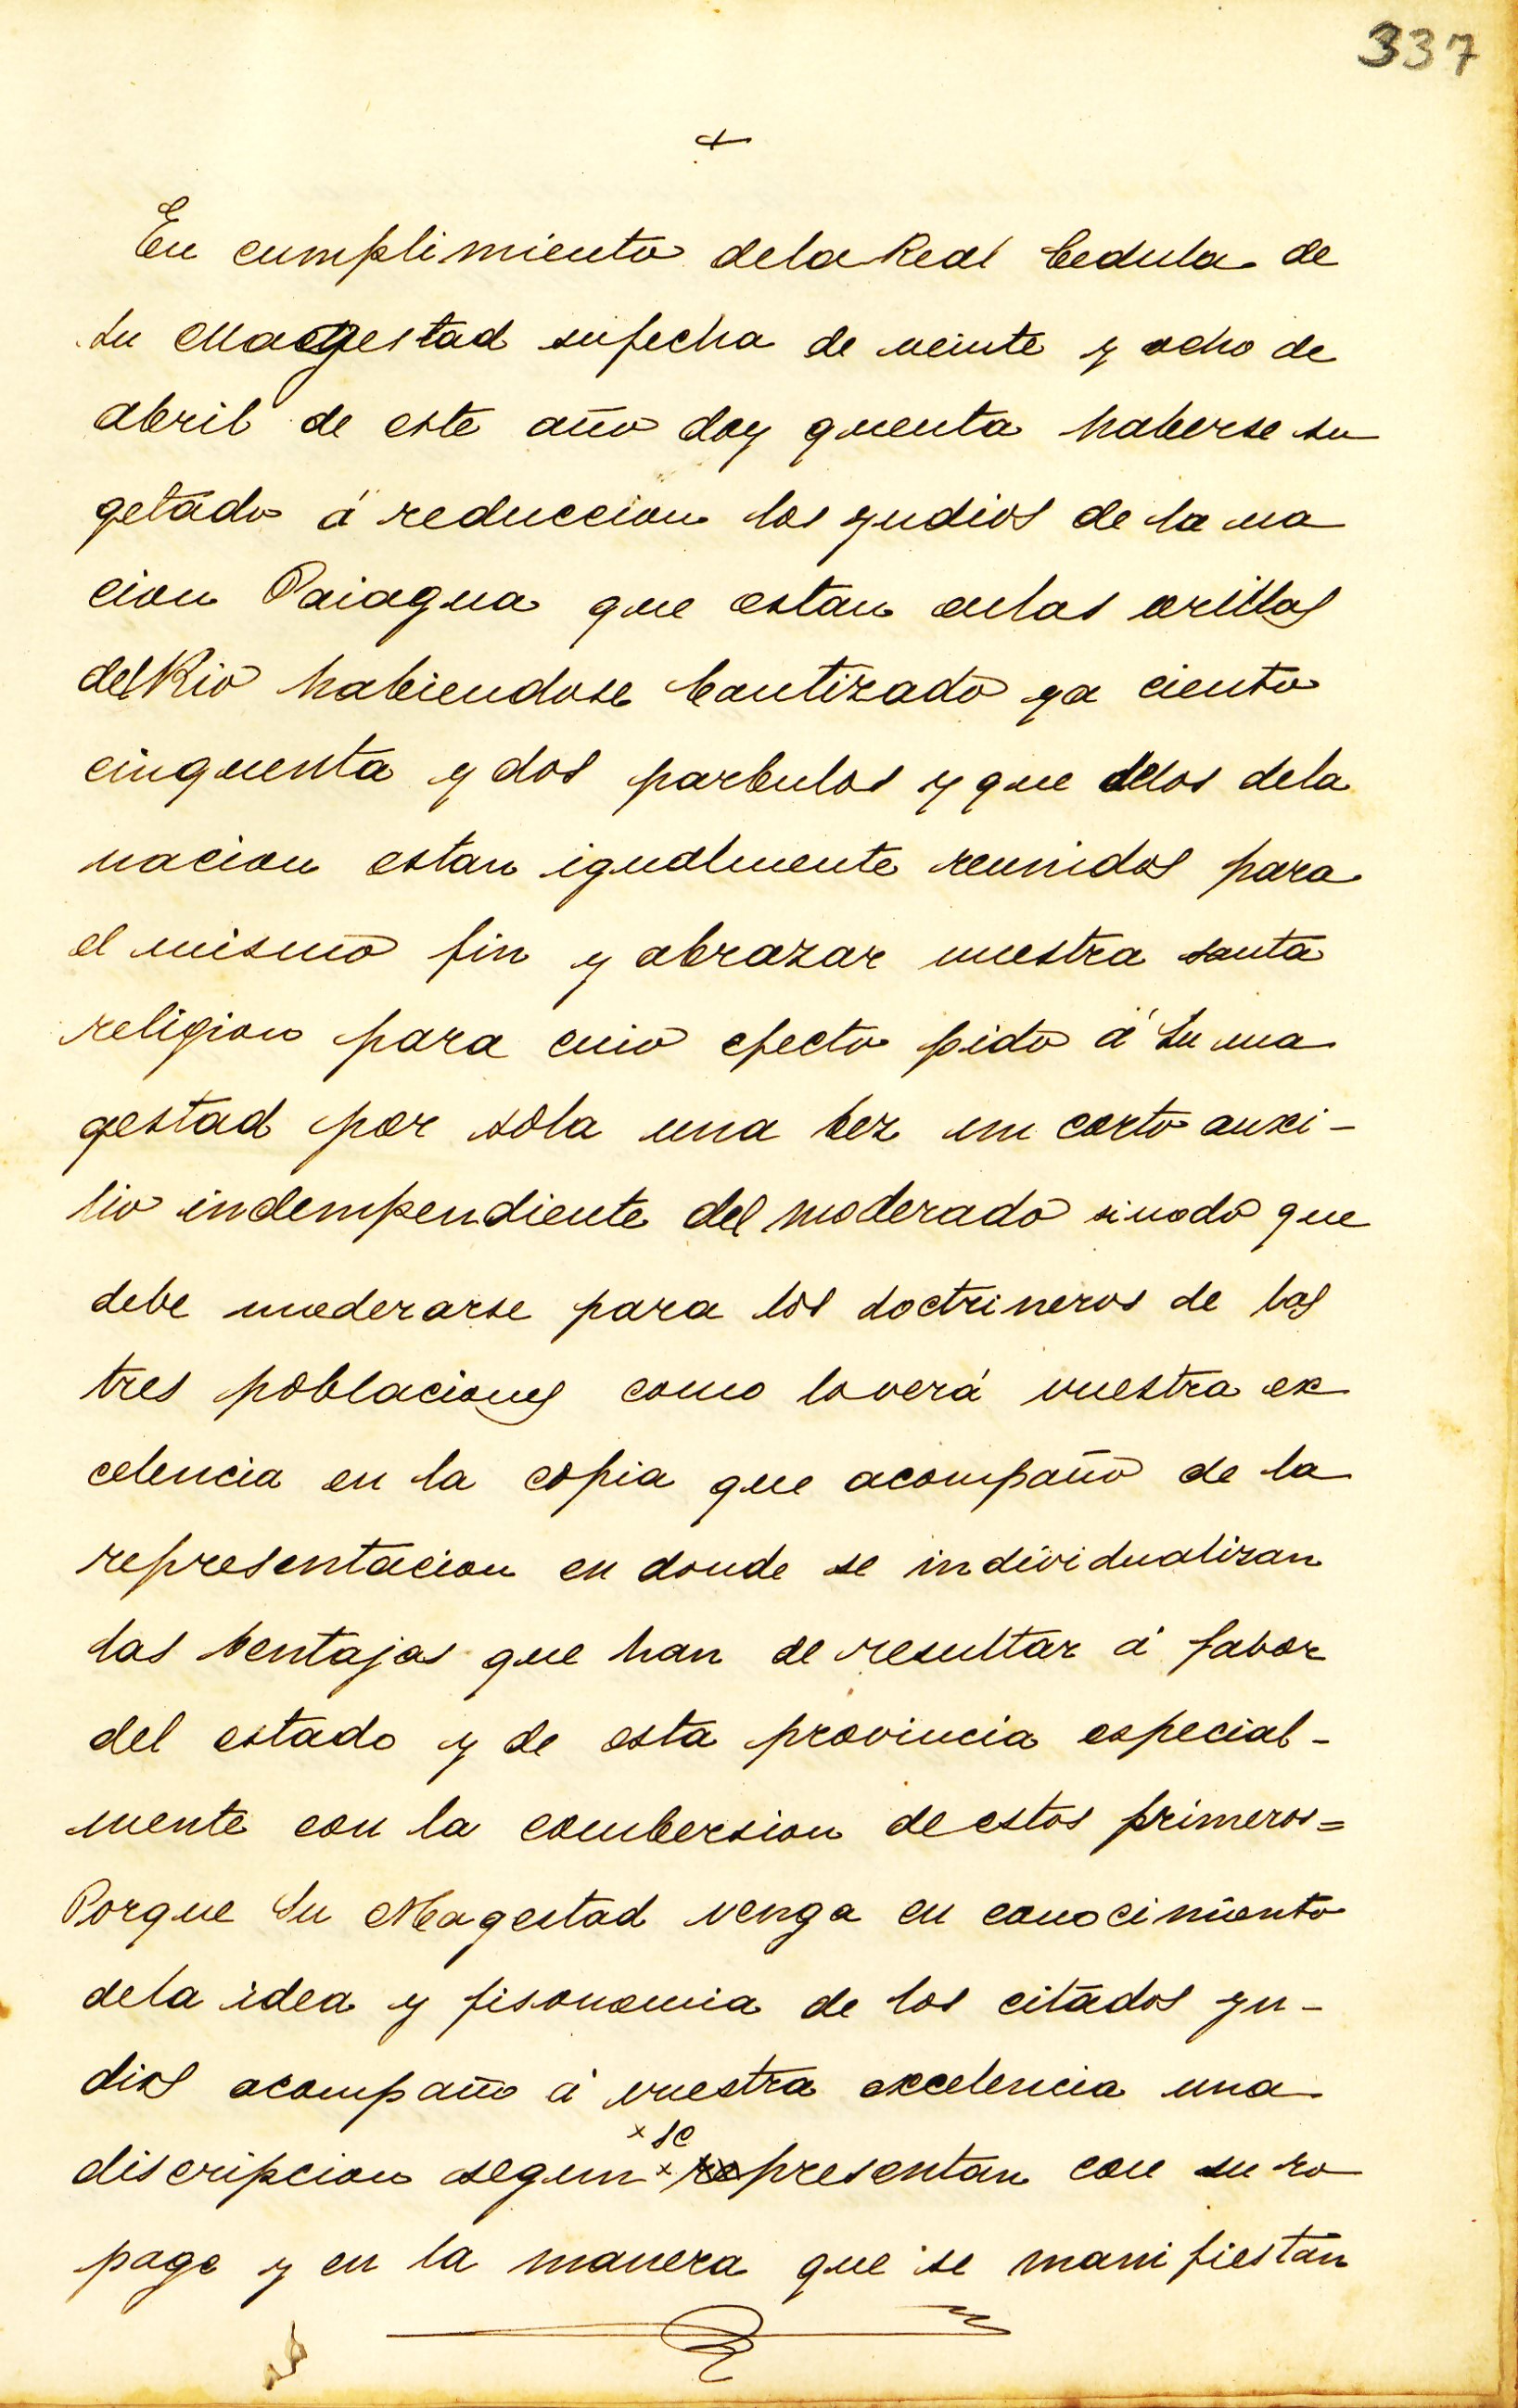 337
+
En cumplimiento dela Real Cedula de
Su Magestad sufecha de veinte y ocho de
abril de este año doy quenta haberse su
getado á reduccion los yndios de la na
cion Paiagua que estan enlas orillas
del Rio habiendose bautizado ya ciento
cinquenta y dos parbulos y que dellos dela
nacion estan igualmente reunidos para
el mismo fin y abrazar nuestra santa
religion para cuio efecto pido á Su ma
gestad por sola una bez un corto auxi-
lio indempendiente del moderado sinodo que
debe moderarse para los doctrineros de las
tres poblaciones como loverá vuestra ex
celencia en la copia que acompaño de la
representacion en donde se individualizan
las bentajas que han de resultar á fabor
del estado y de esta provincia especial-
mente con la combersion de estos primeros=
Porque Su Magestad venga en conocimiento
dela idea y fisonomia de los citados yn-
dios acompaño á vuestra excelencia una
x se
discripcion segun x representan con su ro
page y en la manera que se manifiestan